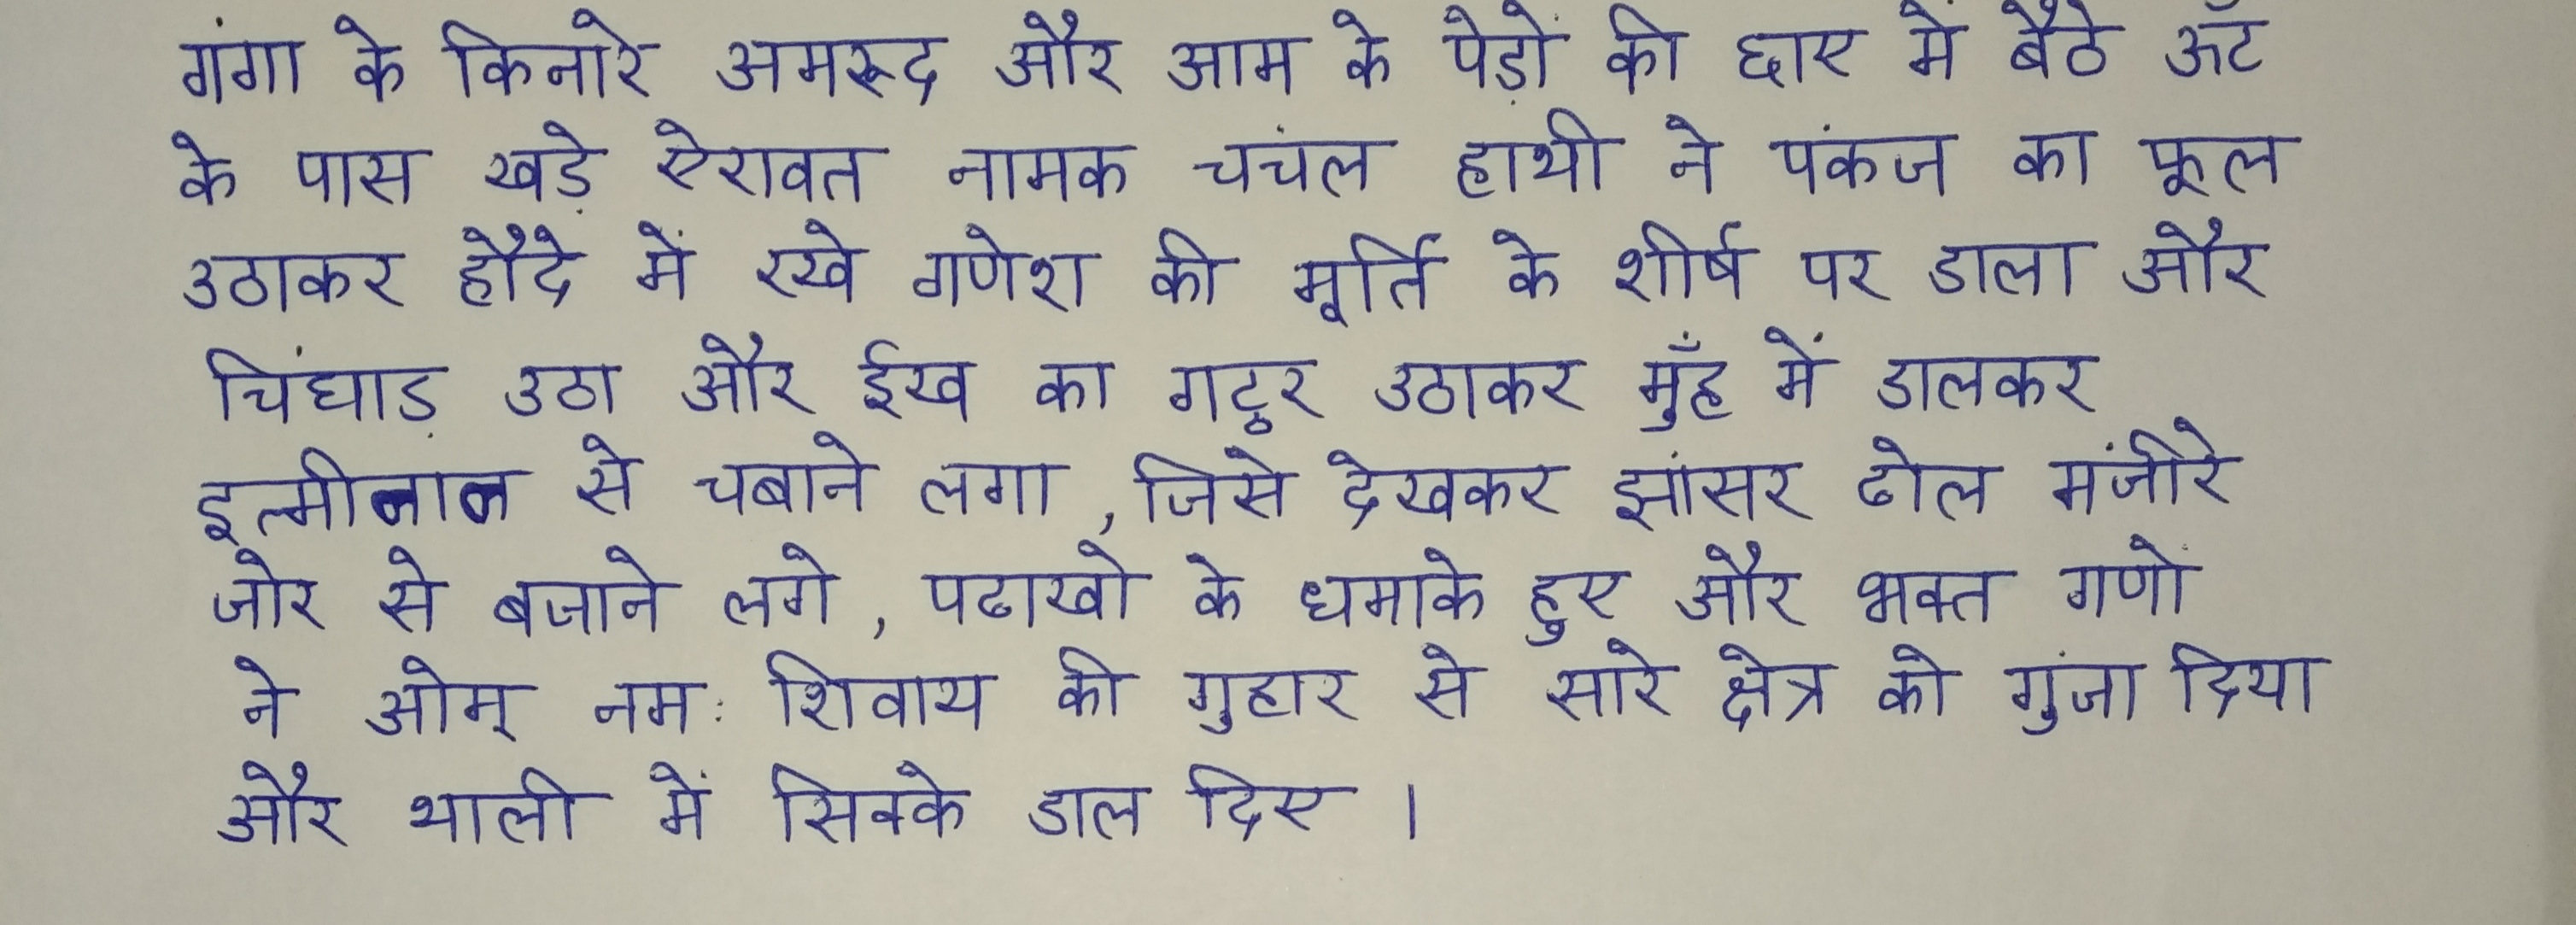 गंगा के किनारे अमरूद और आम के पेड़ों की छाए में बैठे ऊँट
के पास खड़े ऐरावत नामक चचंल हाथी ने पंकज का फूल
उठाकर हौदे में रखे गणेश की मूर्ति के शीर्ष पर डाला और
चिंघाड़ उठा और ईख का गट्ठर उठाकर मुँह में डालकर
इत्मीनान से चबाने लगा, जिसे देखकर झांसर ढोल मंजीरे
जोर से बजाने लगे, पटाखो के धमाके हुए और भक्त गणों
ने ओम् नमः शिवाय की गुहार से सारे क्षेत्र को गुंजा दिया
और थाली में सिक्के डाल दिए ।